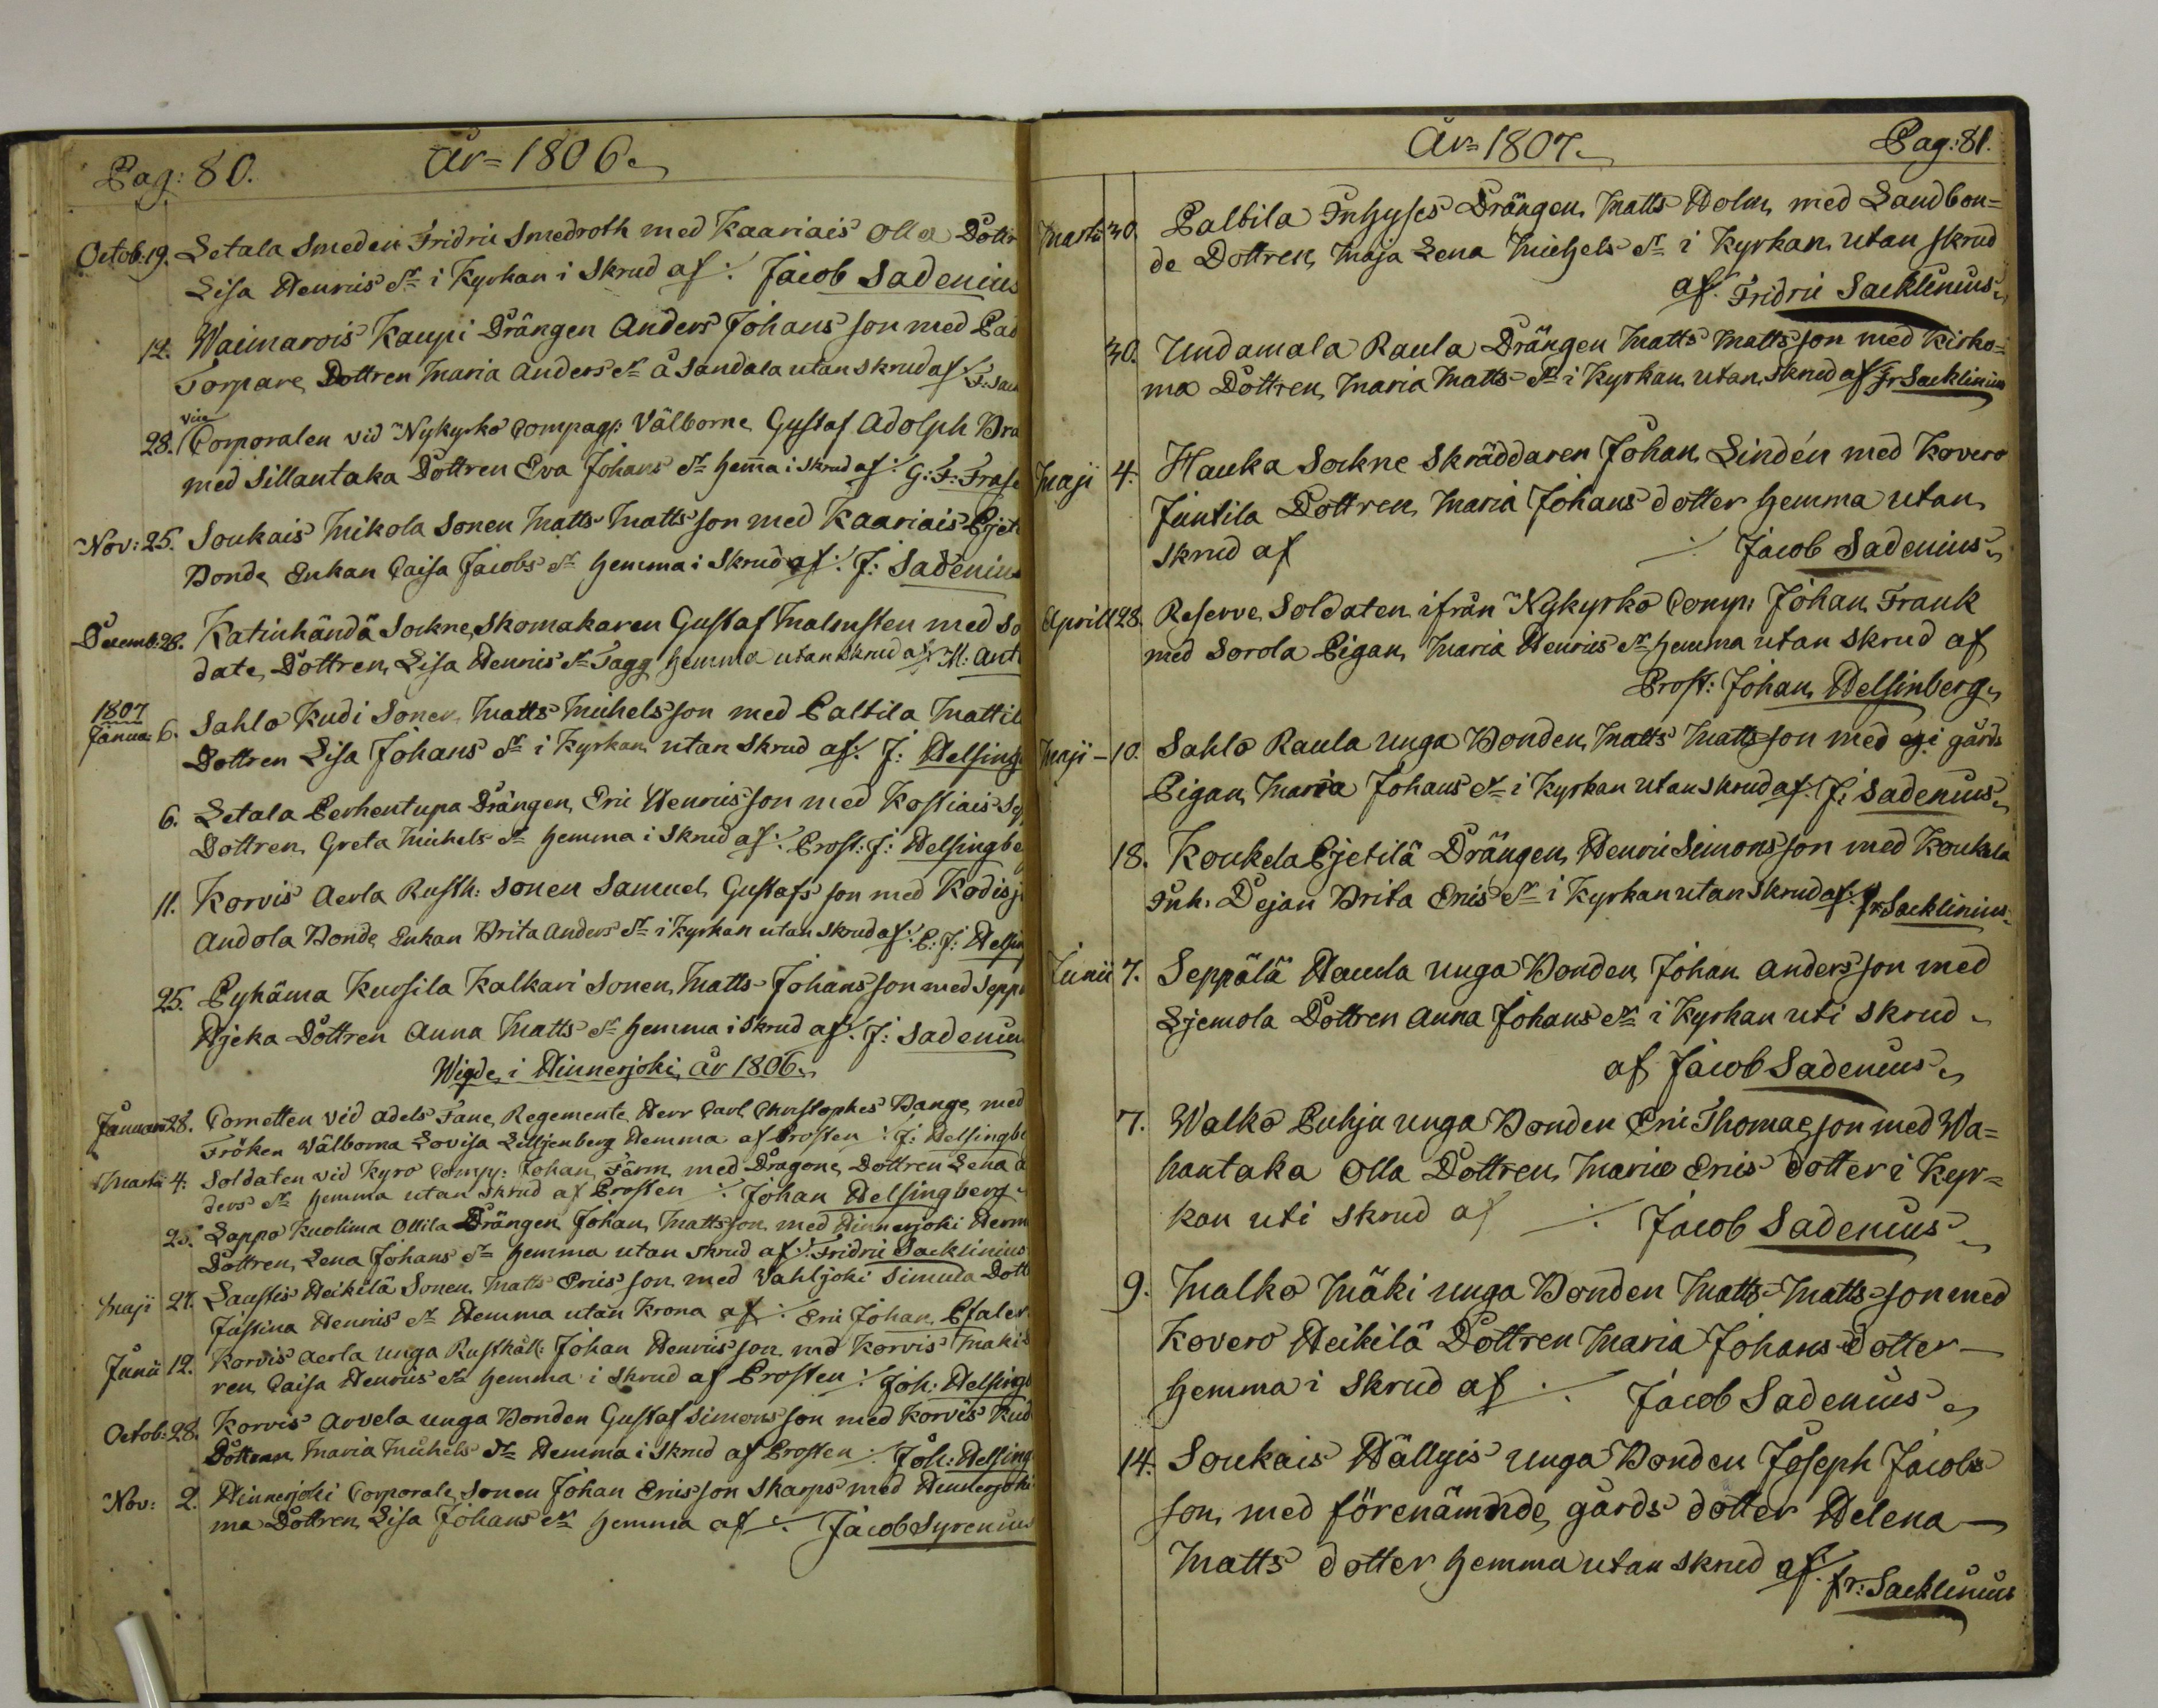 Pag: 80. År = 1806.
Octob: 19. Letala Smeden Fridric Smedroth med Kaariais Olla Dottr
Lisa Henrics dr i Kyrkan i Skrud af ∕. Jacob Sadenius
12. Waimarois Kaupi Drängen Anders Johans son med Pad
Torpare Dottren Maria Anders dr å Sandala utan skrud af F: Sack
vice
28. Corporalen vid Nykyrko Compagn: Välborne Gustaf Adolph Bra
med Sillantaka Dottren Eva Johans dr hema i Skrud af ∕. G: F: Frase
Nov: 25. Soukais Mikola Sonen Matts Matts son med Kaariais Pjet
Bonde Enkan Caisa Jacobs dr hemma i Skrud af ∕. J: Sadenius
Decemb: 28. Katinhändä Sockne Skomakaren Gustaf Malmsten med So
date Dottren Lisa Henrics dr Tagg hemma utan skrud af M: Ant
1807
Janua: 6. Sahlo Kudi Sonen Matts Michels son med Paltila Mattil
Dottren Lisa Johans dr i Kyrkan utan Skrud af ∕. J: Helsing
6. Letala Perhentupa Drängen Eric Henrics son med Kostiais
Dottren Greta Michels dr hemma i Skrud af ∕. Prost: J: Helsingbe
11. Korvis Aerla Rusth: Sonen Samuel Gustafs son med Kodisj
Andola Bonde Enkan Brita Anders dr i Kyrkan utan skrud af ∕. P: J: Helsin
25. Pyhäma Kuosila Kalkari Sonen Matts Johans son med Sepp
Hjeka Dottren Anna Matts dr hemma i Skrud af ∕. J: Sadenius
Wigde i Hinnerjoki år 1806.
Januarii 28. Cornetten vid Adels Fane Regemente Herr Carl Christopher Bange med
Fröken Välborna Lovisa Lilljenberg Hemma af Prosten ∕. J: Helsingbe
Martii 4. Soldaten vid Kyro Comp: Johan Färm med Dragone Dottren Lena a
ders dr hemma utan Skrud af Prosten ∕. Johan Helsingberg
25. Lappo Kuolima Ollila Drängen Johan Mattsson med Hinnerjoki Herm
Dottren Lena Johans dr hemma utan skrud af ∕. Fridric Sacklinius
Maji 27. Laustis Heikilä Sonen Matts Erics son med Vahljoki Simula Dott
Justina Henrics dr Hemma utan Krona af ∕. Eric Johan Pfaler
Junii 12. Korvis Aerla unga Rusthåll: Johan Henrics son med Korvis Maki
ren Caisa Henrics dr hemma i skrud af Prosten ∕. Joh: Helsing
Octob: 28. Korvis Arvela unga Bonden Gustaf Simons son med Korvis Kud
Dottren Maria Michels dr Hemma i Skrud af Prosten ∕. Joh: Helsing
Nov: 2. Hinnerjoki Corporale Sonen Johan Ericsson Skarps med Hinnerjoki
ma Dottren Lisa Johans dr hemma af ∕. Jacob Syrenius
År = 1807. Pag: 81.
Martii 30. Paltila Inhyses Drängen Matts Holm med Landbon=
de Dottren Maja Lena Michels dr i Kyrkan utan skrud
af. Fridric Sacklinius
30. Undamala Raula Drängen Matts Matts son med Kirko=
ma Dottren Maria Matts dr i Kyrkan utan skrud af Fr Sacklinius
Maji 4. Hauka Sockne Skräddaren Johan Lindén med Kovero
Juntila Dottren Maria Johans dotter hemma utan
Skrud af ∕. Jacob Sadenius
Aprill 28. Reserve Soldaten ifrån Nykyrko Comp: Johan Frank
med Sorola Pigan Maria Henrics dr hemma utan skrud af
Prost: Johan Helsinberg
Maji - 10. Sahlo Raula unga Bonden Matts Matts son med egi gårds
Pigan Maria Johans dr i Kyrkan utan skrud af. J: Sadenius
18. Koukela Pjetilä Drängen Henric Simons son med Koukela
Inh. Pejan Brita Erics dr i Kyrkan utan skrud af. Fr Sacklinius
Junii 7. Seppälä Haula unga Bonden Johan Anders son med
Ljemola Dottren Anna Johans dr i Kyrkan uti skrud
af Jacob Sadenius
7. Walko Puhju unga Bonden Eric Thomas son med Wa=
hantaka Olla Dottren Maria Erics dotter i Kyr=
kan uti skrud af ∕. Jacob Sadenius
9. Malko Mäki unga Bonden Matts Matts son med
Kovero Heikilä Dottren Maria Johans dotter
hemma i Skrud af ∕. Jacob Sadenius
14. Soukais Hällyis unga Bonden Joseph Jacobs
son med förenämnde gårds dotter Helena
Matts dotter hemma utan skrud af. fr: Sacklinius